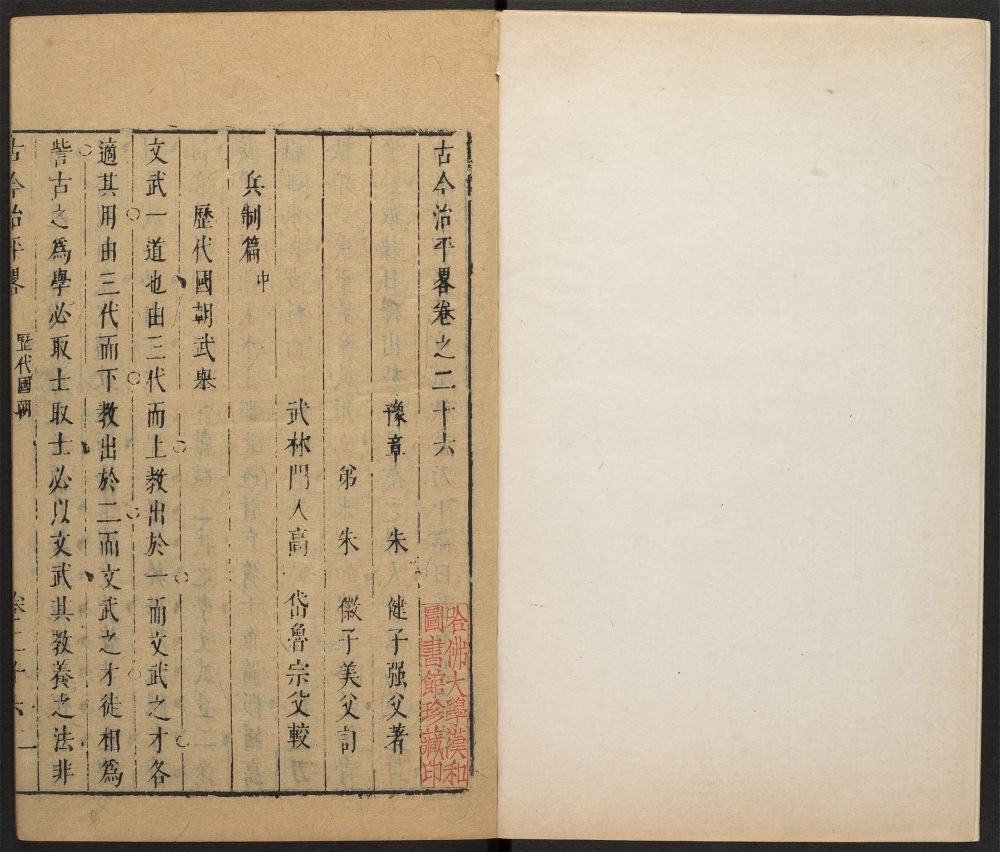 古今治平畧卷之二十六
豫章　朱　健子强父著
弟　朱　徽子美父訂
武林門人高　岱魯宗父較
兵制篇中
歷代國朝武舉
文武一道也由三代而上教出於一而文武之才各
適其用由三代而下教出於二而文武之才徒相爲
訾古之爲學必取士取士必以文武其教養之法非
古今治平畧
歷代國朝
卷二十六
一
哈佛大學漢和
圖書館珍藏印